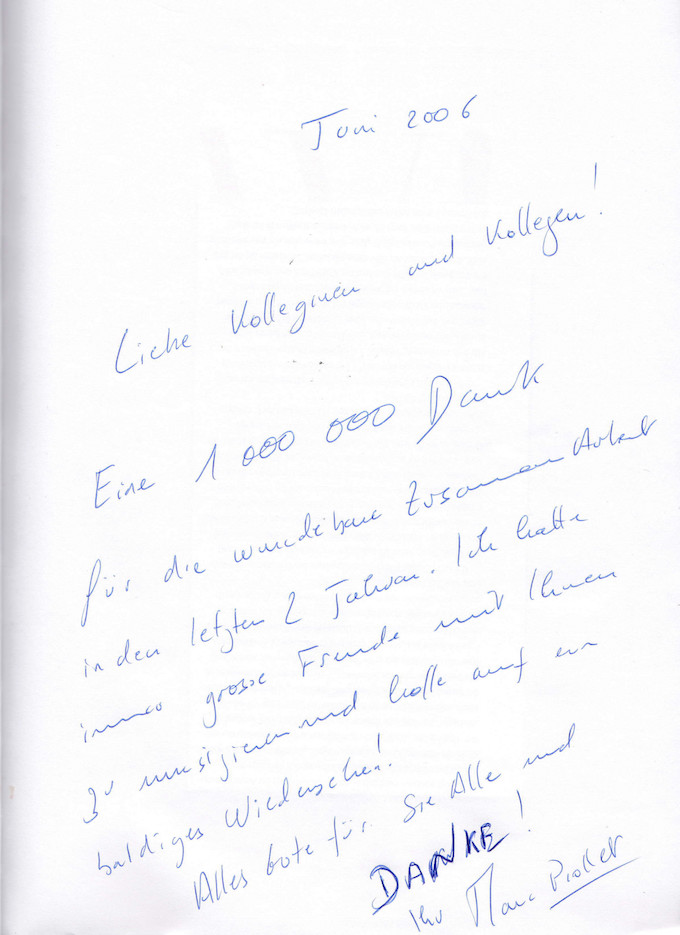 Juni 2006
Liebe Kolleginen und Kollegen!
Eine 1 000 000 Dank
für die wunderbare Zusammen Arbeit
in den letzten 2 Jahren. Ich hatte
immer grosse Freude mit Ihnen
zu musizieren und hoffe auf ein
baldiges Wiedersehen!
Alles Gute für Sie Alle und
DANKE!
Ihr Marc Piollet